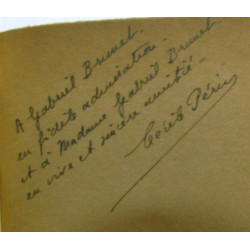 A Gabriel Brunet.
en fidèle admiration -
et à Madame Gabriel Brunet
en vive et sincère amitié -
Cécile Périn